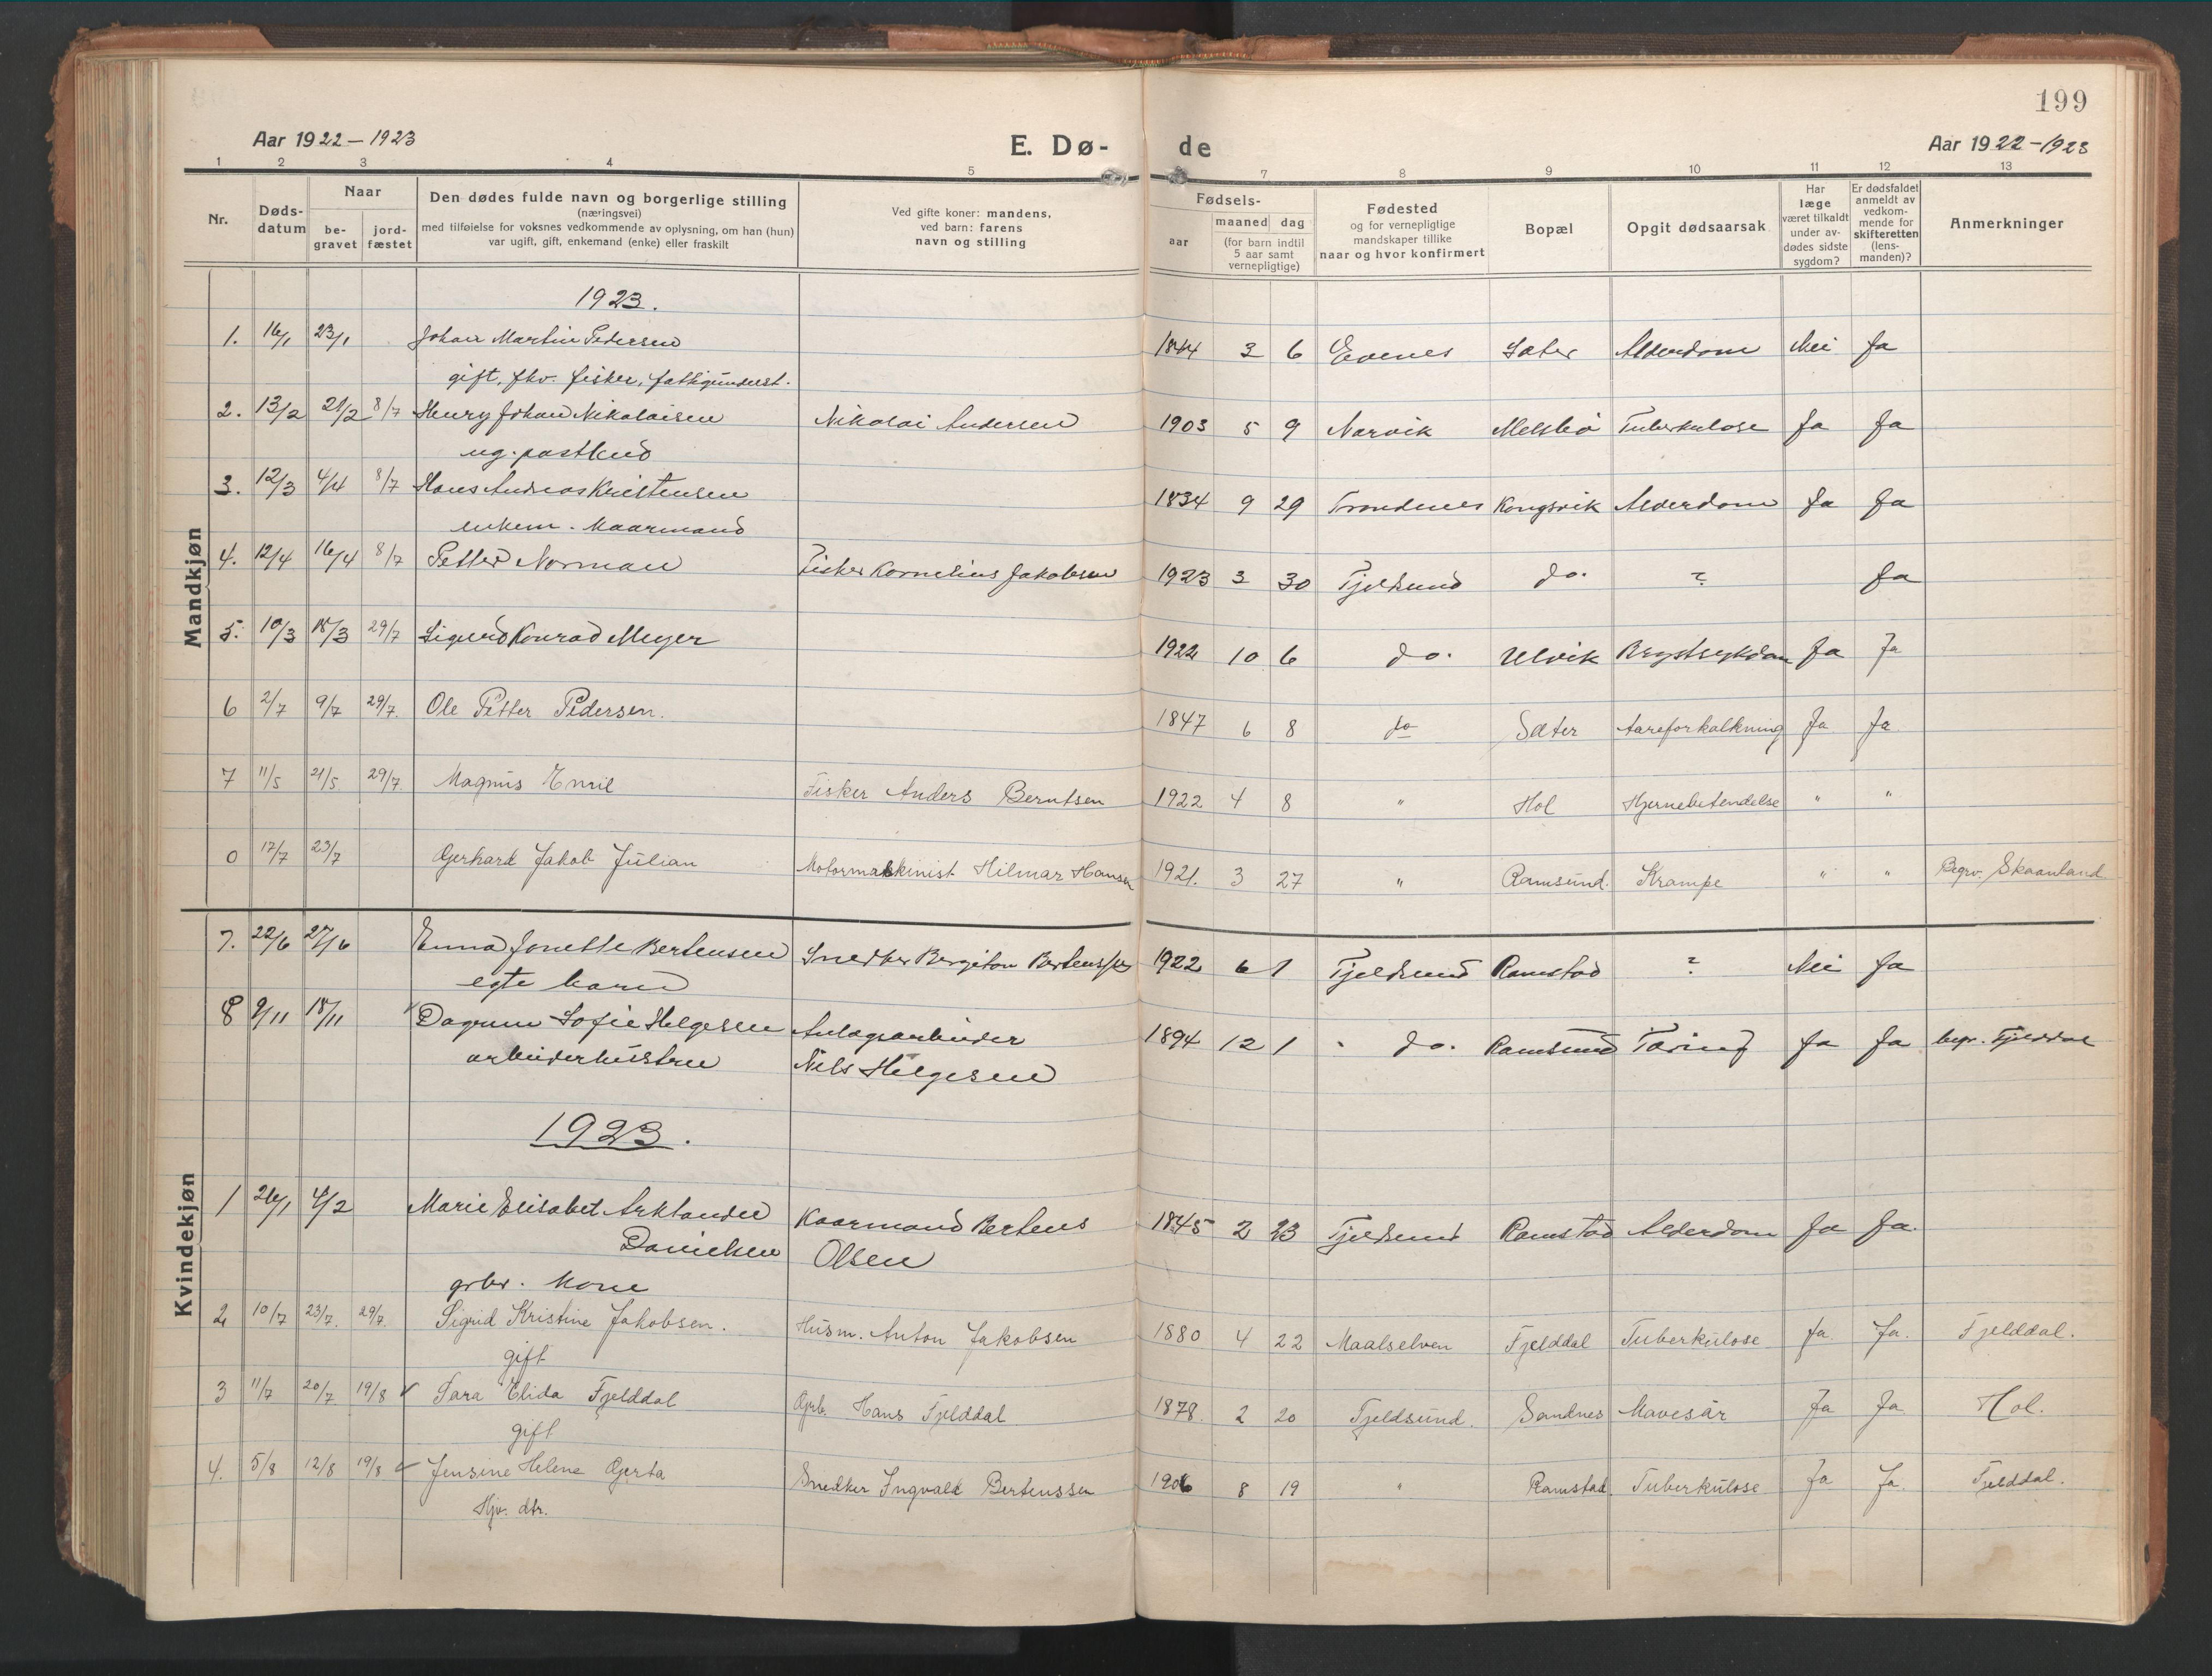 199
Aar 1922-1923 E. Dø- de Aar 1922-1923
1 2 3 4 5 7 8 9 10 11 12 13
Nr. Døds-datum Naar be-gravet jord-fæstet Den dødes fulde navn og borgerlige stilling (næringsvei) med tilføielse for voksnes vedkommende av oplysning, om han (hun) var ugift, gift, enkemand (enke) eller fraskilt Ved gifte koner: mandens, ved barn: farens navn og stilling Fødsels- aar maaned dag (for barn indtil 5 aar samt vernepligtige) Fødested og for vernepligtige mandskaper tillike naar og hvor konfirmert Bopæl Opgit dødsaarsak Har læge været tilkaldt under av-dødes sidste sygdom? Er dødsfaldet anmeldt av vedkom-mende for skifteretten (lens-manden)? Anmerkninger
Mandkjøn
1923.
1. 16/1 23/1 Johan Martin Pedersen 1844 3 6 Evenes Sæter Alderdom Nei Ja
gift, fhv. fisker, fattigunderst.
2. 13/2 21/2 8/7 Henry Johan Nikolaisen Nikolai Andersen 1903 5 9 Narvik Melsbø Tuberkulose Ja Ja
ug. postbud
3. 12/3 4/4 8/7 Hans Andreas Kristensen 1834 9 29 Trondenes Kongsvik Alderdom Ja Ja
enkem. kaarmand
4. 12/4 16/4 8/7 Petter Norman Fisker Kornelius Jakobsen 1923 3 30 Tjeldsund do. ? Ja
5. 10/3 18/3 29/7 Sigurd Konrad Meyer 1922 10 6 do. Ulvik Brystsykdom Ja Ja
6 2/7 9/7 29/7. Ole Petter Pedersen. 1847 6 8 do Sæter Aareforkalkning Ja Ja
7 11/5 21/5. 29/7. Magnus Emil Fisker Anders Berntsen 1922 4 8 " Hol Hjernebetendelse " "
0 17/7 23/7 Gerhard Jakob Julian Motormaskinist Hilmar Hansen 1921. 3 27 " Ramsund. Krampe " " Begrv. Skaanland.
Kvindekjøn
7. 22/6 27/6 Emma Jonette Bertensen Snedker Bergiton Bertenssen 1922 6 1 Tjeldsund Ramstad ? Nei Ja
egte barn
8 9/11 18/11 Dagrun Sofie Helgesen Anlægsarbeider 1894 12 1 do. Ramsund Tæring Ja Ja begr. Fjelddal
arbeiderhustru Nils Helgesen
1923.
1 26/1 4/2 Marie Elisabet Arktander Kaarmand Bertens 1845 2 23 Tjeldsund Ramstad Alderdom Ja Ja.
Danielsen Olsen
grbr. kone
2 10/7 23/7. 29/7. Sigrid Kristine Jakobsen. Husm. Anton Jakobsen 1880 4 22 Maalselven Fjelddal Tuberkulose Ja Ja. Fjelddal.
gift
3 11/7 20/7. 19/8 Sara Elida Fjelddal Grb. Hans Fjelddal 1878. 2 20 Tjeldsund. Sandnes Mavesår Ja Ja Hol.
gift
4. 5/8 12/8 19/8 Jensine Helene Gjerta Snedker Ingvald Bertenssen 1906 8 19 " Ramstad. Tuberkulose Ja Ja. Fjelddal.
Hjv. dtr.